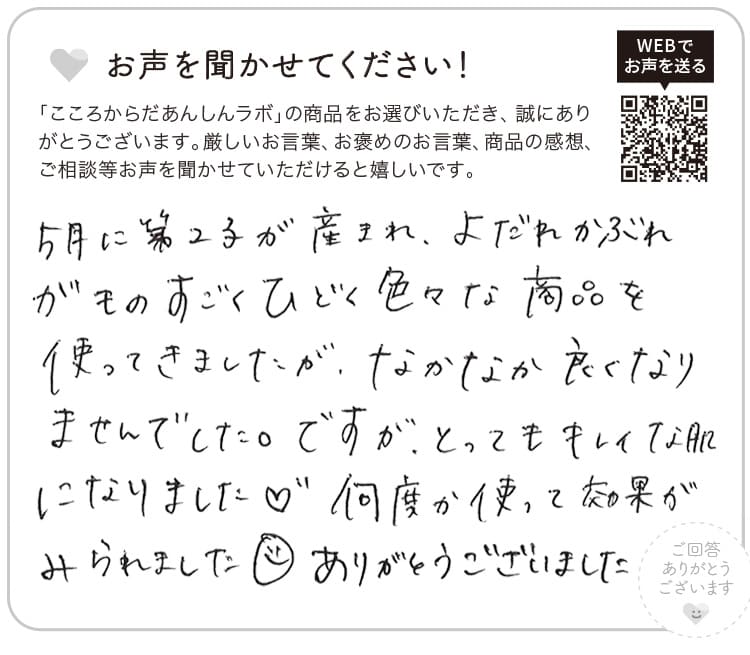 お声を聞かせてください！
WEBで
お声を送る
「こころからだあんしんラボ」の商品をお選びいただき、誠にあり
がとうございます。厳しいお言葉、お褒めのお言葉、商品の感想、
ご相談等お声を聞かせていただけると嬉しいです。
5月に第2子が産まれ、よだれかぶれ
がものすごくひどく色々な商品を
使ってきましたが、なかなか良くなり
ませんでした。ですが、とってもキレイな肌
になりました♡ 何度か使って効果が
みられました☺ ありがとうございました
ご回答
ありがとう
ございます